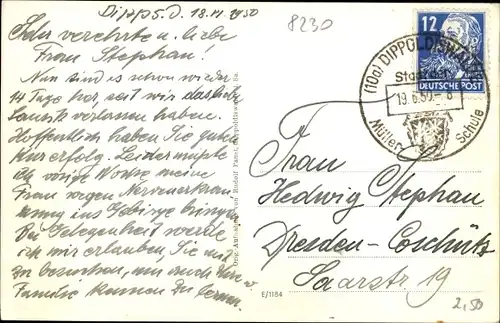 Dipps.D. 18.VI.1950
8230
Sehr verehrte u. liebe
Frau Stephan!
Nun sind es schon wieder
14 Tage her, seit wir das liebe
Lausik verlassen haben.
Hoffentlich haben Sie guten
Kurerfolg. Leider mußte
ich vorige Woche meine
Frau wegen Nervenerkran
kung ins Gebirge bringen.
Bei Gelegenheit werde
ich mir erlauben, Sie mit
zu besuchen, um auch Ihre
Familie kennen zu lernen.
12
DEUTSCHE POST
(10a) DIPPOLDISWALDE
19.6.50.-8
Müller Schule
Frau
Hedwig Stephan
Dresden-Coschütz
Saarstr. 19
E/1184
2,50